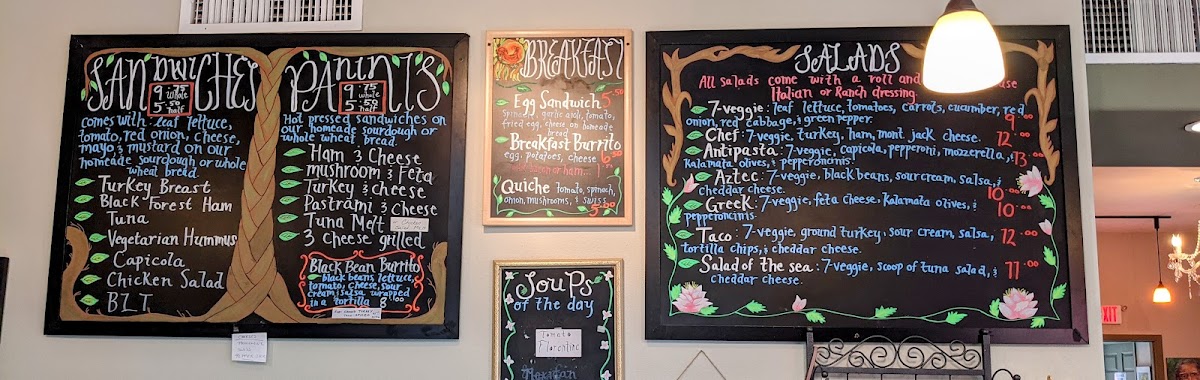 SANDWICHES
9.75 whole
5.50 half
comes with: leaf lettuce,
tomato, red onion, cheese,
mayo & mustard on our
homeade sourdough or whole
wheat bread.
Turkey Breast
Black Forest Ham
Tuna
Vegetarian Hummus
Capicola
Chicken Salad
BLT
PANINI'S
9.75 whole
5.50 half
Hot pressed sandwiches on
our homeade sourdough or
whole wheat bread.
Ham & Cheese
mushroom & Feta
Turkey & cheese
Pastrami & Cheese
Tuna Melt
3 cheese grilled
Black Bean Burrito
black beans, lettuce
tomato, cheese, sour
cream & salsa wrapped
in a tortilla 8.00
BREAKFAST
Egg Sandwich 5.50
Spinach, garlic aioli, tomato,
fried egg, cheese on homeade
bread
Breakfast Burrito
egg, potatoes, cheese 6.50
or ham...
Quiche tomato, spinach,
onion, mushrooms, & swiss
5.50
SOUPS
OF THE DAY
Tomato
Florentine
Mexican
SALADS
All salads come with a roll and
Italian or Ranch dressing.
7-veggie: leaf lettuce, tomatoes, carrots, cucumber, red
onion, red cabbage, & green pepper. 9.00
Chef: 7-veggie, turkey, ham, mont. jack cheese. 12.00
Antipasto: 7-veggie, capicola, pepperoni, mozzerella, &
Kalamata olives, & pepperoncinis. 13.00
Aztec: 7-veggie, black beans, sour cream, salsa, &
cheddar cheese. 10.00
Greek: 7-veggie, feta cheese, Kalamata olives, &
pepperoncinis. 10.00
Taco: 7-veggie, ground turkey, sour cream, salsa,
tortilla chips, & cheddar cheese. 12.00
Salad of the sea: 7-veggie, scoop of tuna salad, &
cheddar cheese. 11.00
EXIT